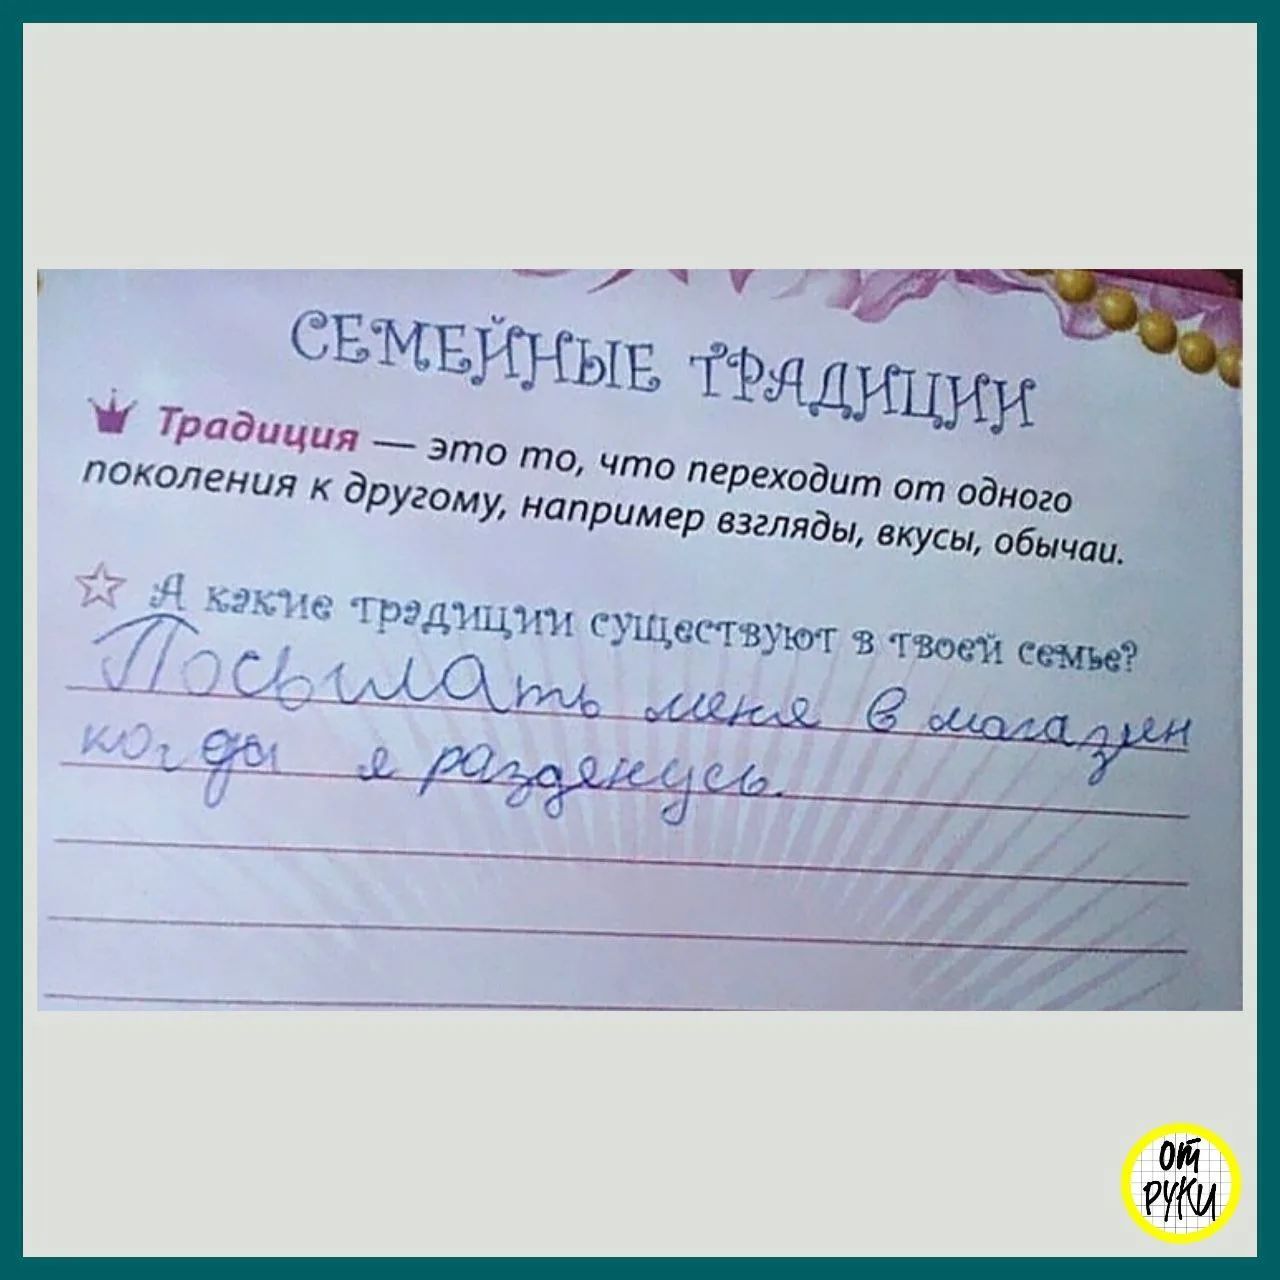 СЕМЕЙНЫЕ ТРАДИЦИИ
Традиция — это то, что переходит от одного
поколения к другому, например взгляды, вкусы, обычаи.
А какие традиции существуют в твоей семье?
Посылать меня в магазин
когда я разденусь.
ОТ
РУКИ